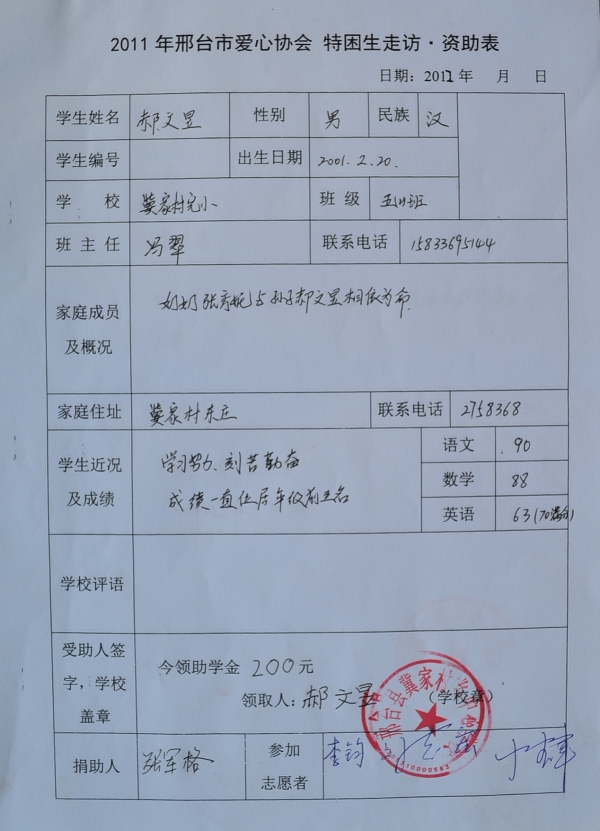 2011年邢台市爱心协会 特困生走访·资助表
日期：2012年 月 日
学生姓名 郝文昱 性别 男 民族 汉
学生编号 出生日期 2001.2.20.
学 校 冀家村完小 班级 五.班
班主任 冯翠 联系电话 15833695144
家庭成员及概况
奶奶张彦妮与孙子郝文昱相依为命
家庭住址 冀家村东庄 联系电话 2758368
学生近况及成绩
学习努力、刻苦勤奋
成绩一直位居年级前五名
语文 90
数学 88
英语 63(70满分)
学校评语
受助人签字，学校盖章
今领助学金 200元
领取人：郝文昱 （学校章）
邢台县冀家村乡
捐助人 张军格 参加志愿者 李钧